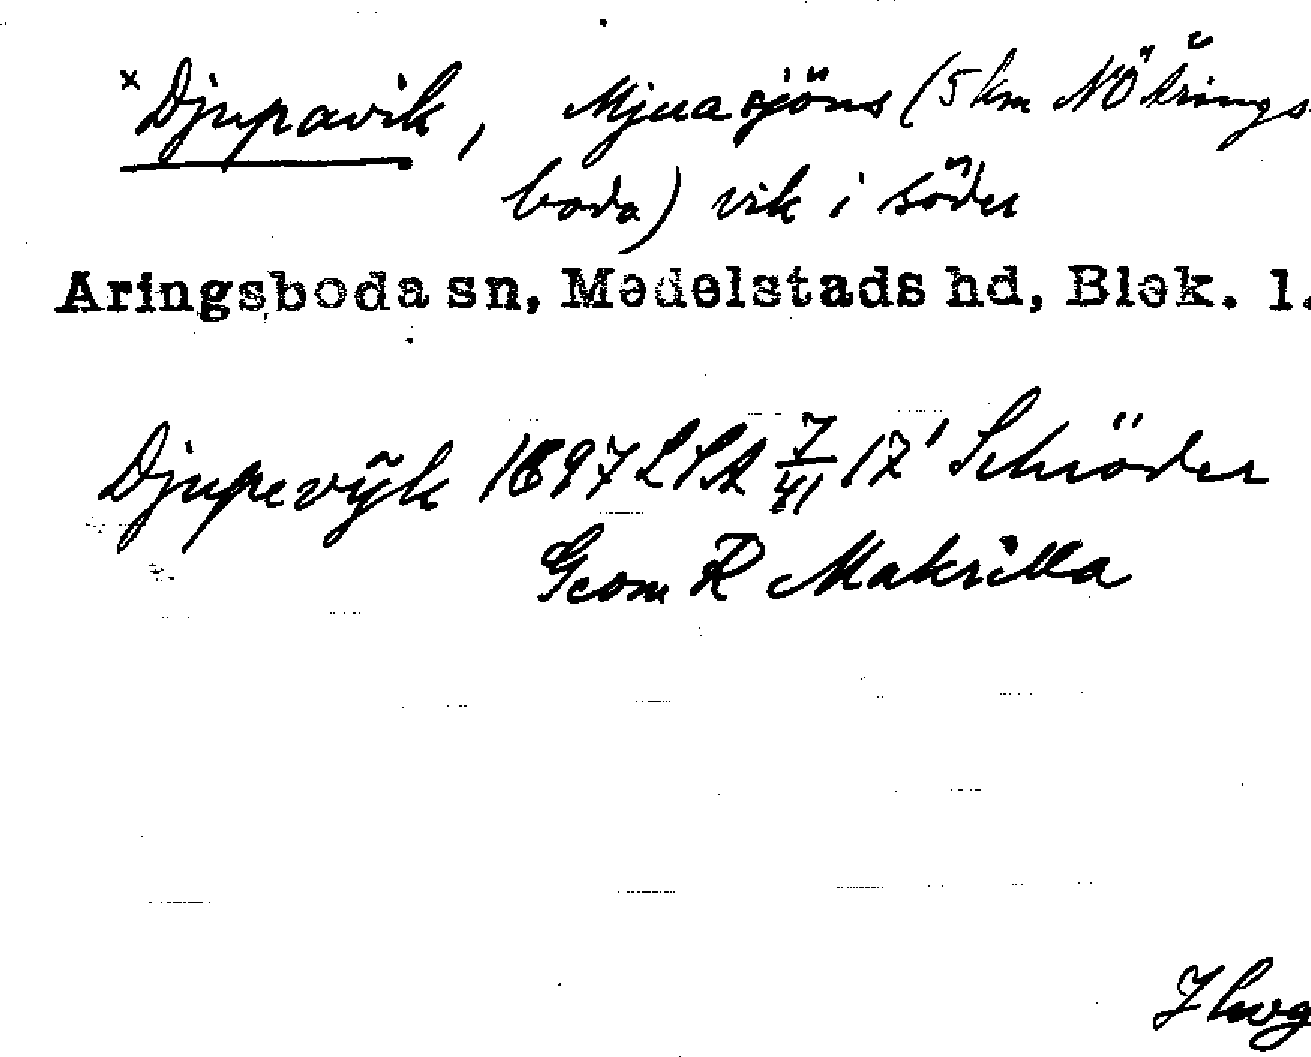 x Djupavik, Mjuasjöns (5 km NÖ Årings-
boda) vik i söder
Aringsboda sn, Medelstads hd, Blek. l.
Djupevÿk 1697 LSA 7/41 17' Schröder
Geom R Makrilla